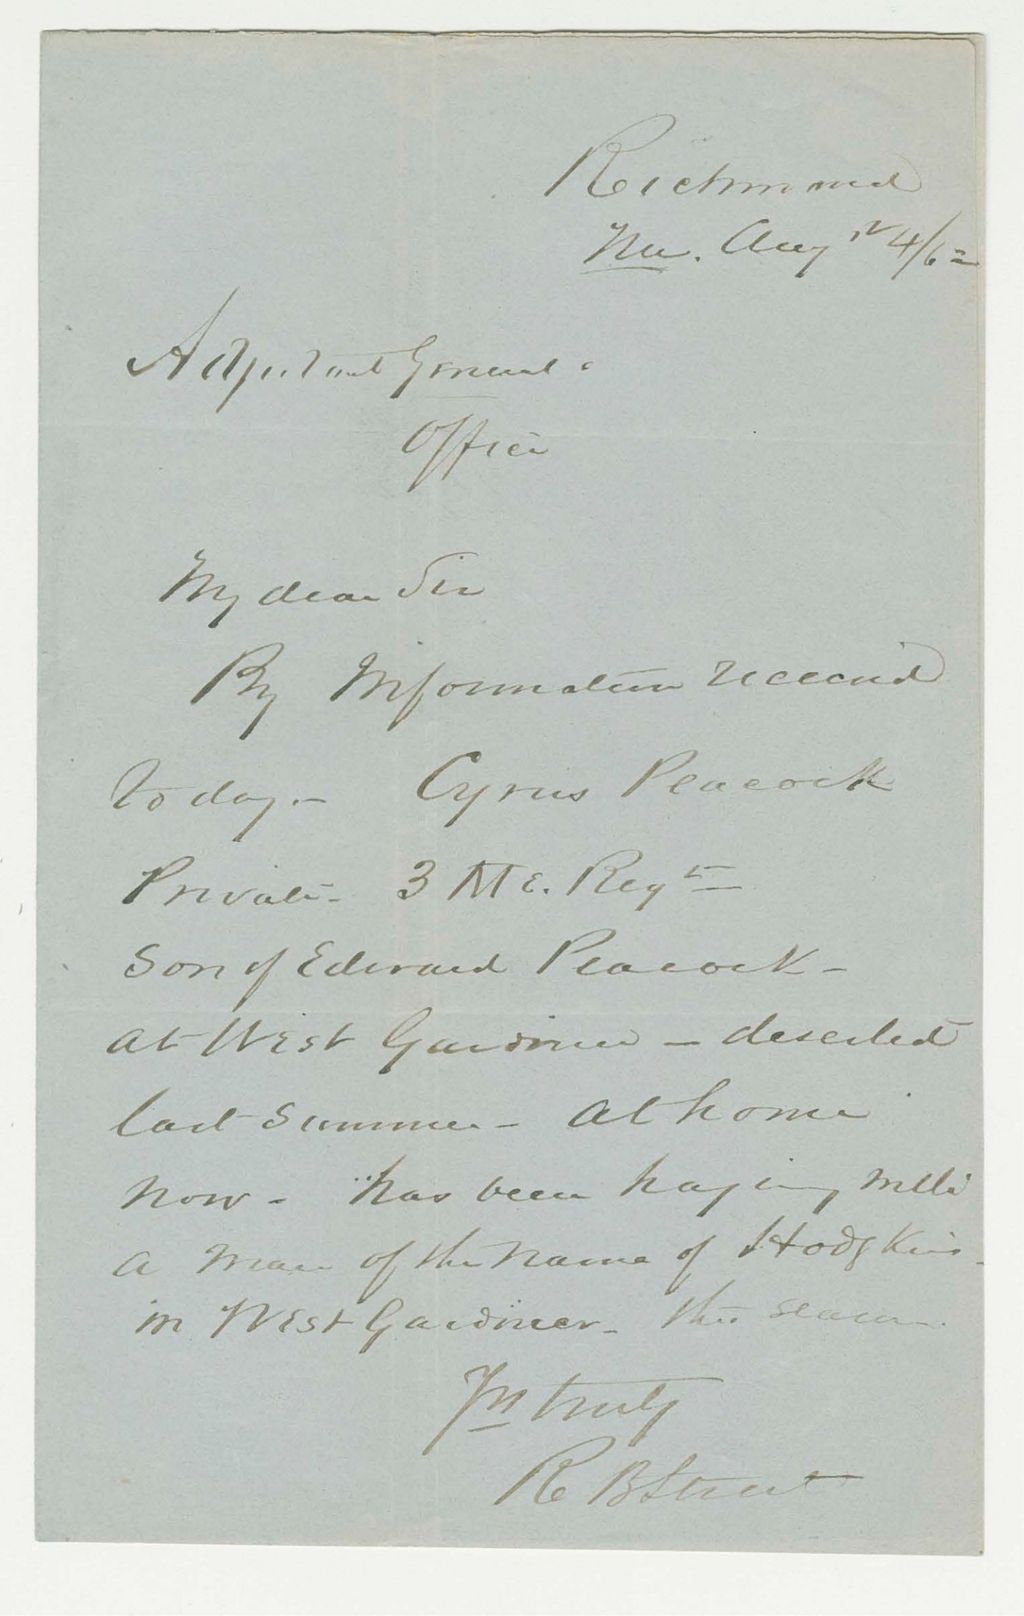 Richmond
Me. Aug 4/62
Adjutant General
Office
My dear Sir
By Information received
To day - Cyrus Peacock
Private - 3 ME. Regt
Son of Edward Peacock -
at West Gardiner - deserted
last summer - at home
now - has been haying with
a man of the name of Hodgkins
in West Gardiner - this season
Yrs truly
R B Street